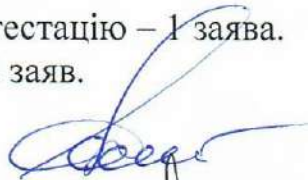 тестацію – 1 заява.
заяв.